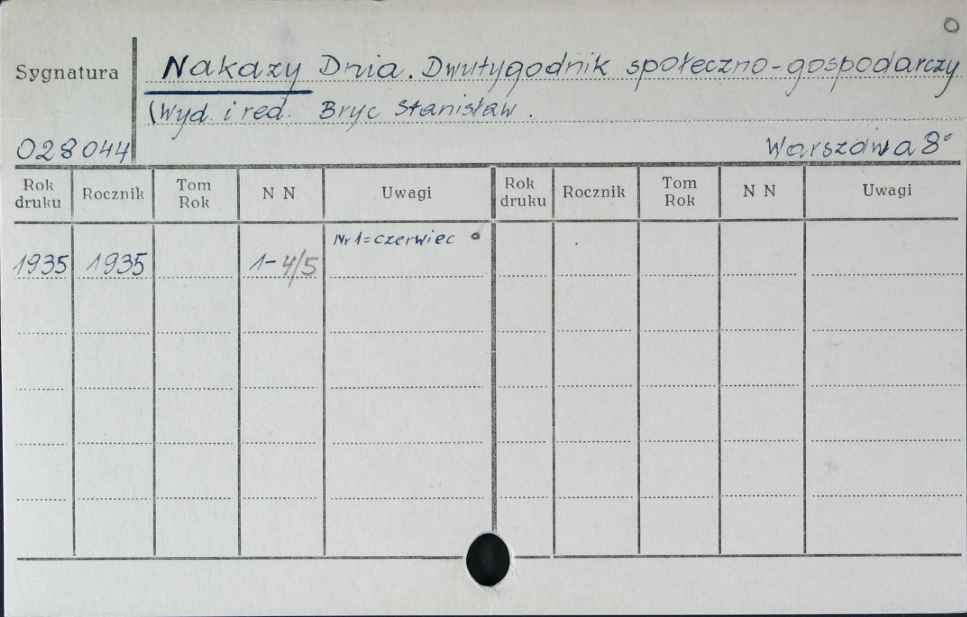 Sygnatura Nakazy Dnia. Dwutygodnik społeczno-gospodarczy
(Wyd. i red. Bryc Stanisław.
028044 Warszawa 8°
Rok druku Rocznik Tom Rok N N Uwagi Rok druku Rocznik Tom Rok N N Uwagi
Nr 1=czerwiec
1935 1935 1-4/5